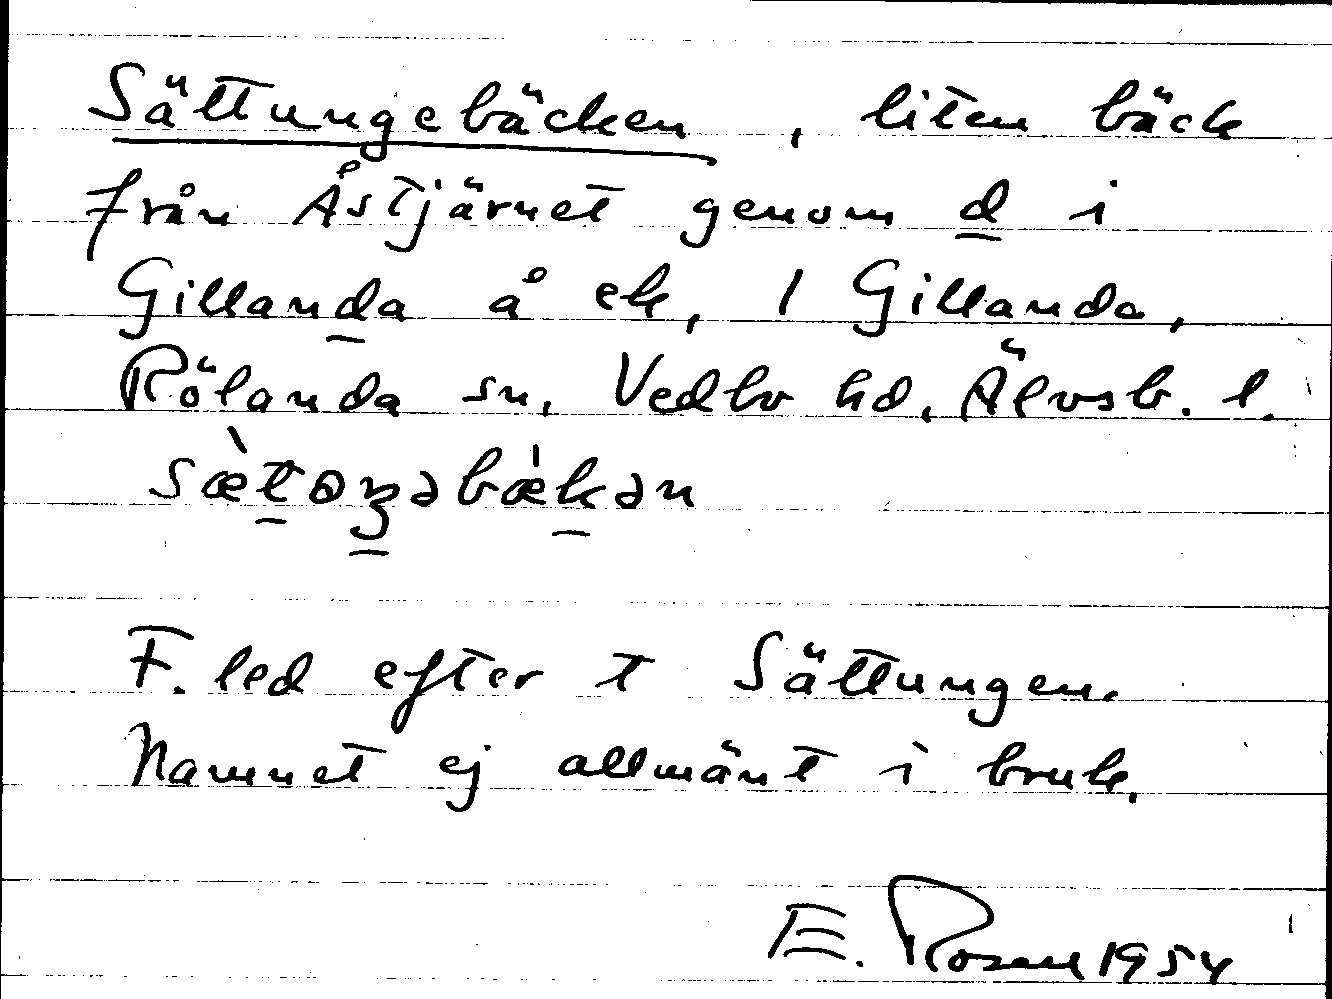 Sättungebäcken, liten bäck
från Åstjärnet genom d i
Gillanda å ek, 1 Gillanda,
Rölanda sn, Vedbo hd, Älvsb. l.
sæ̀toŋəbæ̀kən
F. led efter t Sättungen.
Namnet ej allmänt i bruk.
E. Rosell 1954